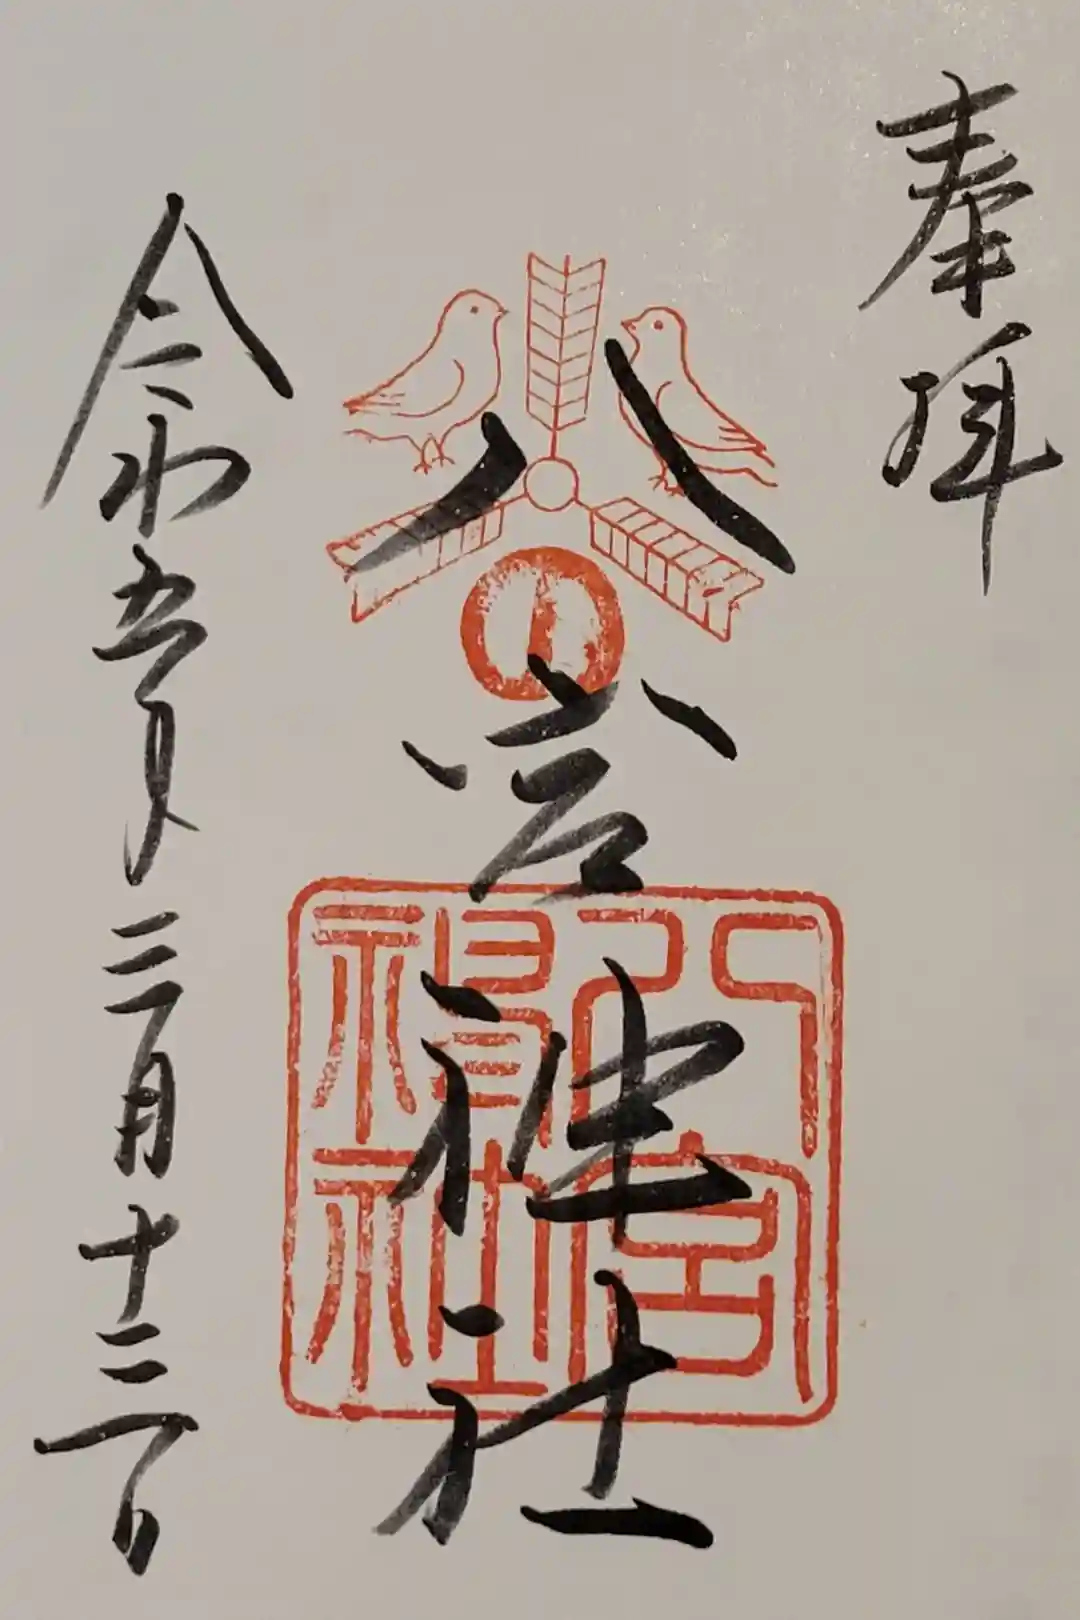 奉拝
八宮神社
令和五年三月十三日
八宮神社